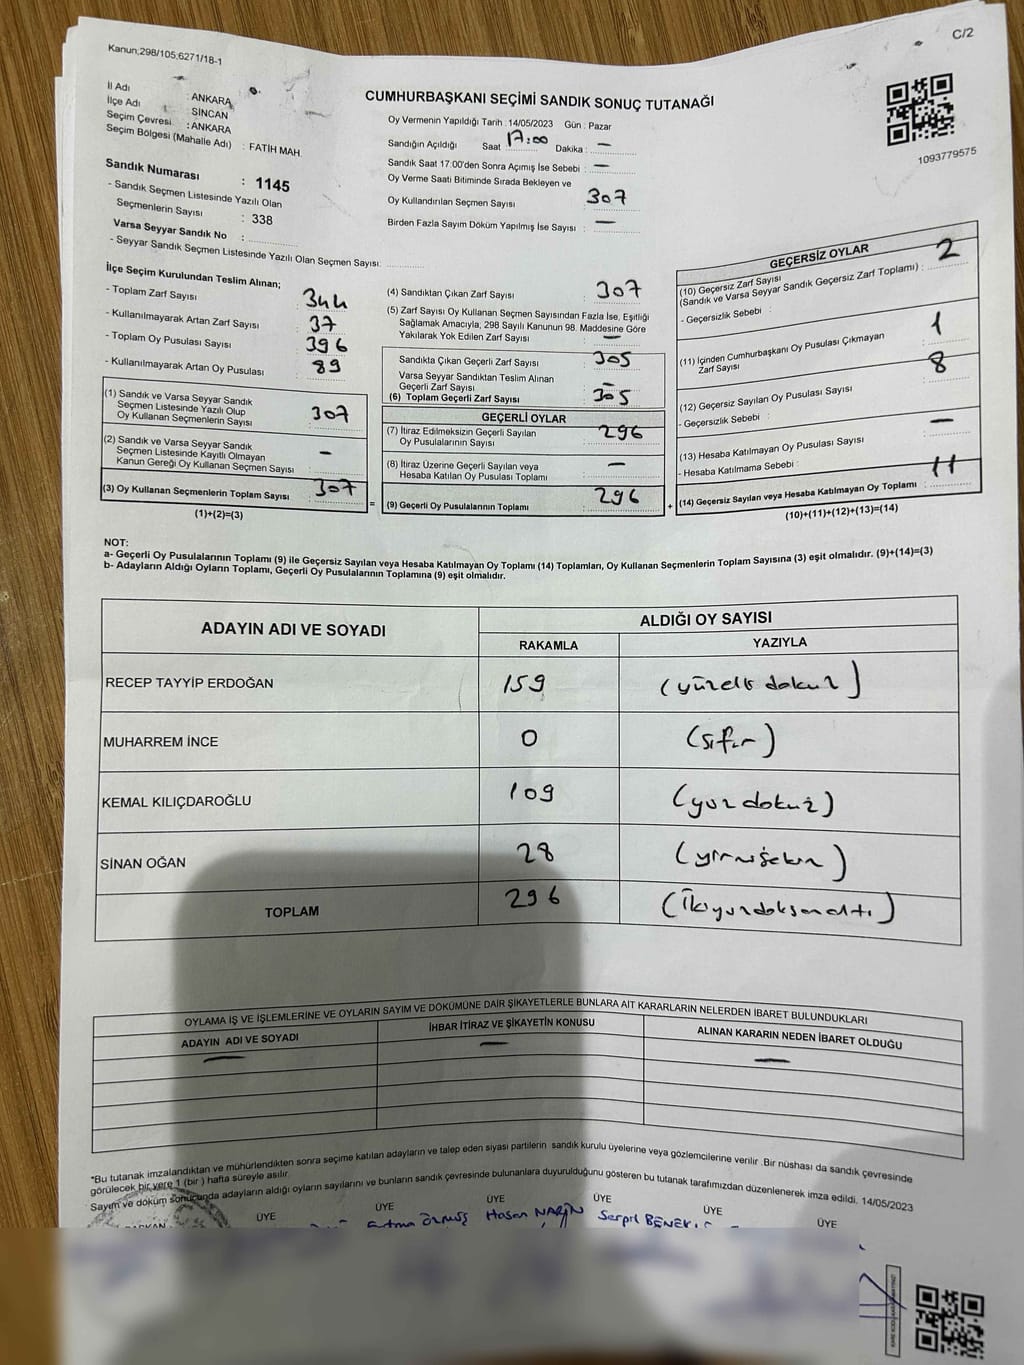 Kanun;298/105;6271/18-1
C/2
İl Adı : ANKARA
İlçe Adı : SİNCAN
Seçim Çevresi : ANKARA
Seçim Bölgesi (Mahalle Adı) : FATİH MAH.
Sandık Numarası : 1145
- Sandık Seçmen Listesinde Yazılı Olan
Seçmenlerin Sayısı : 338
Varsa Seyyar Sandık No :
- Seyyar Sandık Seçmen Listesinde Yazılı Olan Seçmen Sayısı:
CUMHURBAŞKANI SEÇİMİ SANDIK SONUÇ TUTANAĞI
Oy Vermenin Yapıldığı Tarih : 14/05/2023 Gün : Pazar
Sandığın Açıldığı Saat 17:00 Dakika : —
Sandık Saat 17:00'den Sonra Açımış İse Sebebi : —
Oy Verme Saati Bitiminde Sırada Bekleyen ve
Oy Kullandırılan Seçmen Sayısı : 307
Birden Fazla Sayım Döküm Yapılmış İse Sayısı : —
1093779575
İlçe Seçim Kurulundan Teslim Alınan;
- Toplam Zarf Sayısı : 344
- Kullanılmayarak Artan Zarf Sayısı : 37
- Toplam Oy Pusulası Sayısı : 396
- Kullanılmayarak Artan Oy Pusulası : 89
(1) Sandık ve Varsa Seyyar Sandık
Seçmen Listesinde Yazılı Olup
Oy Kullanan Seçmenlerin Sayısı : 307
(2) Sandık ve Varsa Seyyar Sandık
Seçmen Listesinde Kayıtlı Olmayan
Kanun Gereği Oy Kullanan Seçmen Sayısı : —
(3) Oy Kullanan Seçmenlerin Toplam Sayısı : 307
(1)+(2)=(3)
=
(4) Sandıktan Çıkan Zarf Sayısı : 307
(5) Zarf Sayısı Oy Kullanan Seçmen Sayısından Fazla İse, Eşitliği
Sağlamak Amacıyla, 298 Sayılı Kanunun 98. Maddesine Göre
Yakılarak Yok Edilen Zarf Sayısı : —
Sandıkta Çıkan Geçerli Zarf Sayısı : 305
Varsa Seyyar Sandıktan Teslim Alınan
Geçerli Zarf Sayısı : —
(6) Toplam Geçerli Zarf Sayısı : 305
GEÇERLİ OYLAR
(7) İtiraz Edilmeksizin Geçerli Sayılan
Oy Pusulalarının Sayısı : 296
(8) İtiraz Üzerine Geçerli Sayılan veya
Hesaba Katılan Oy Pusulası Toplamı : —
(9) Geçerli Oy Pusulalarının Toplamı : 296
+
GEÇERSİZ OYLAR
(10) Geçersiz Zarf Sayısı
(Sandık ve Varsa Seyyar Sandık Geçersiz Zarf Toplamı) : 2
- Geçersizlik Sebebi :
(11) İçinden Cumhurbaşkanı Oy Pusulası Çıkmayan
Zarf Sayısı : 1
(12) Geçersiz Sayılan Oy Pusulası Sayısı : 8
- Geçersizlik Sebebi :
(13) Hesaba Katılmayan Oy Pusulası Sayısı : —
- Hesaba Katılmama Sebebi :
(14) Geçersiz Sayılan veya Hesaba Katılmayan Oy Toplamı : 11
(10)+(11)+(12)+(13)=(14)
NOT:
a- Geçerli Oy Pusulalarının Toplamı (9) ile Geçersiz Sayılan veya Hesaba Katılmayan Oy Toplamı (14) Toplamları, Oy Kullanan Seçmenlerin Toplam Sayısına (3) eşit olmalıdır. (9)+(14)=(3)
b- Adayların Aldığı Oyların Toplamı, Geçerli Oy Pusulalarının Toplamına (9) eşit olmalıdır.
ADAYIN ADI VE SOYADI ALDIĞI OY SAYISI
RAKAMLA YAZIYLA
RECEP TAYYİP ERDOĞAN 159 (yüzelli dokuz)
MUHARREM İNCE 0 (sıfır)
KEMAL KILIÇDAROĞLU 109 (yüzdokuz)
SİNAN OĞAN 28 (yirmisekiz)
TOPLAM 296 (İkiyüzdoksanaltı)
OYLAMA İŞ VE İŞLEMLERİNE VE OYLARIN SAYIM VE DÖKÜMÜNE DAİR ŞİKAYETLERLE BUNLARA AİT KARARLARIN NELERDEN İBARET BULUNDUKLARI
ADAYIN ADI VE SOYADI İHBAR İTİRAZ VE ŞİKAYETİN KONUSU ALINAN KARARIN NEDEN İBARET OLDUĞU
— — —
*Bu tutanak imzalandıktan ve mühürlendikten sonra seçime katılan adayların ve talep eden siyasi partilerin sandık kurulu üyelerine veya gözlemcilerine verilir .Bir nüshası da sandık çevresinde
görülecek bir yere 1 (bir ) hafta süreyle asılır.
Sayım ve döküm sonucunda adayların aldığı oyların sayılarını ve bunların sandık çevresinde bulunanlara duyurulduğunu gösteren bu tutanak tarafımızdan düzenlenerek imza edildi. 14/05/2023
ÜYE ÜYE ÜYE ÜYE ÜYE
Fatma ÖZMUŞ Hasan NARİN Serpil